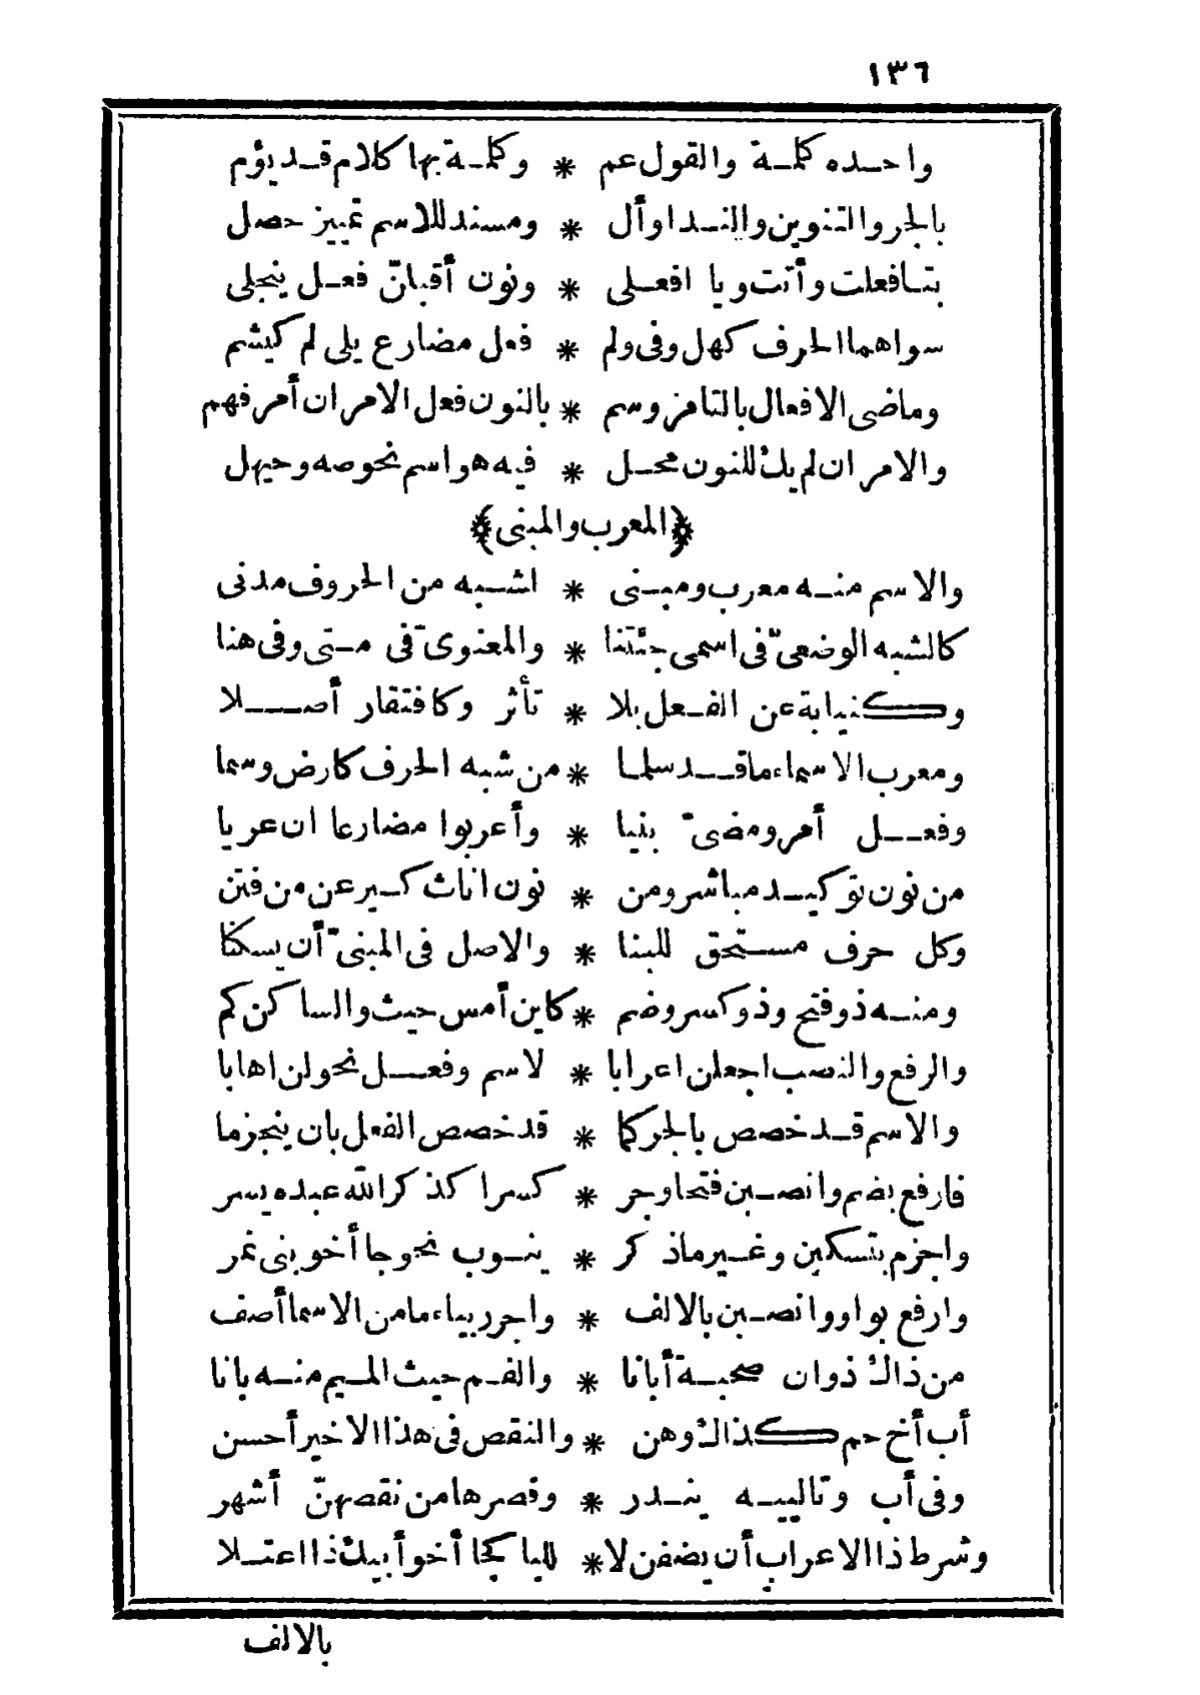 ١٣٦
واحده كلمة والقول عم * وكلمة بها كلام قد يؤم
بالجر والتنوين والندا وأل * ومسند للاسم تمييز حصل
بتا فعلت وأتت ويا افعلى * ونون أقبلنّ فعل ينجلى
سواهما الحرف كهل وفى ولم * فعل مضارع يلى لم كيشم
وماضى الافعال بالتا مز وسم * بالنون فعل الامر ان أمر فهم
والامر ان لم يك للنون محل * فيه هو اسم نحو صه وحيهل
﴿المعرب والمبنى﴾
والاسم منه معرب ومبنى * لشبه من الحروف مدنى
كالشبه الوضعىّ فى اسمى جئتنا * والمعنوىّ فى متى وفى هنا
وكنيابة عن الفعل بلا * تأثر وكافتقار أصلا
ومعرب الاسماء ما قد سلما * من شبه الحرف كارض وسما
وفعل أمر ومضىّ بنيا * وأعربوا مضارعا ان عريا
من نون توكيد مباشر ومن * نون اناث كيرعن من فتن
وكل حرف مستحق للبنا * والاصل فى المبنىّ أن يسكنا
ومنه ذو فتح وذو كسر وضم * كاين أمس حيث والساكن كم
والرفع والنصب اجعلن اعرابا * لاسم وفعل نحو لن اهابا
والاسم قد خصص بالجر كما * قد خصص الفعل بان ينجزما
فارفع بضم وانصبن فتحا وجر * كسرا كذكر الله عبده يسر
واجزم بتسكين وغير ماذكر * ينوب نحو جا أخو بنى نمر
وارفع بواو وانصبن بالالف * واجرر بياء ما من الاسما أصف
من ذاك ذو ان صحبة أبانا * والفم حيث الميم منه بانا
أب أخ حم كذاك وهن * والنقص فى هذا الاخير أحسن
وفى أب وتالييه يندر * وقصرها من نقصهنّ أشهر
وشرط ذا الاعراب أن يضفن لا * لليا كجا أخو أبيك ذا اعتلا
بالالف